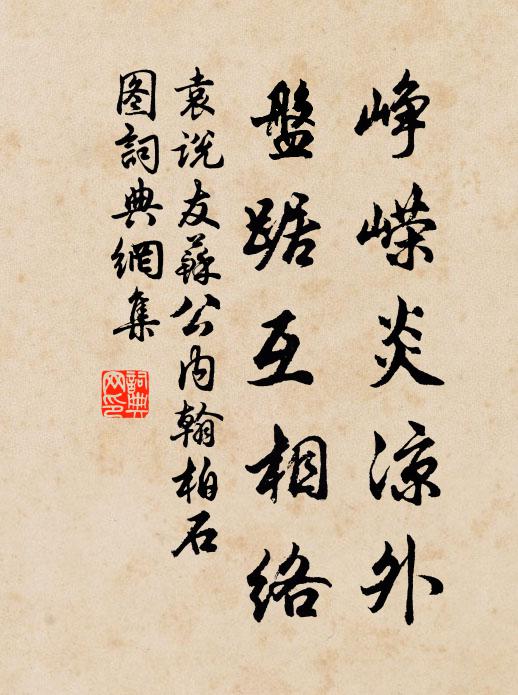 峥嵘炎凉外
盤踞互相络
袁说友蘇公内翰柏石
图詞典網集
詞典
网印